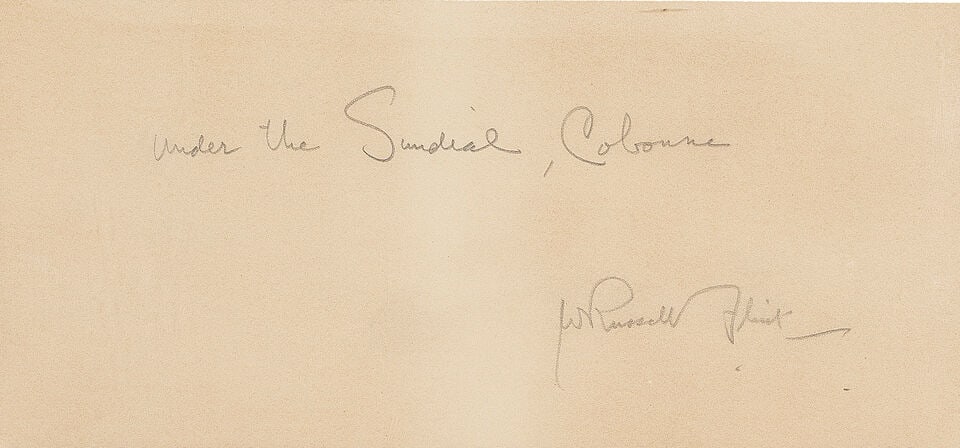 under the Sundial, Cobonne
W Russell Flint